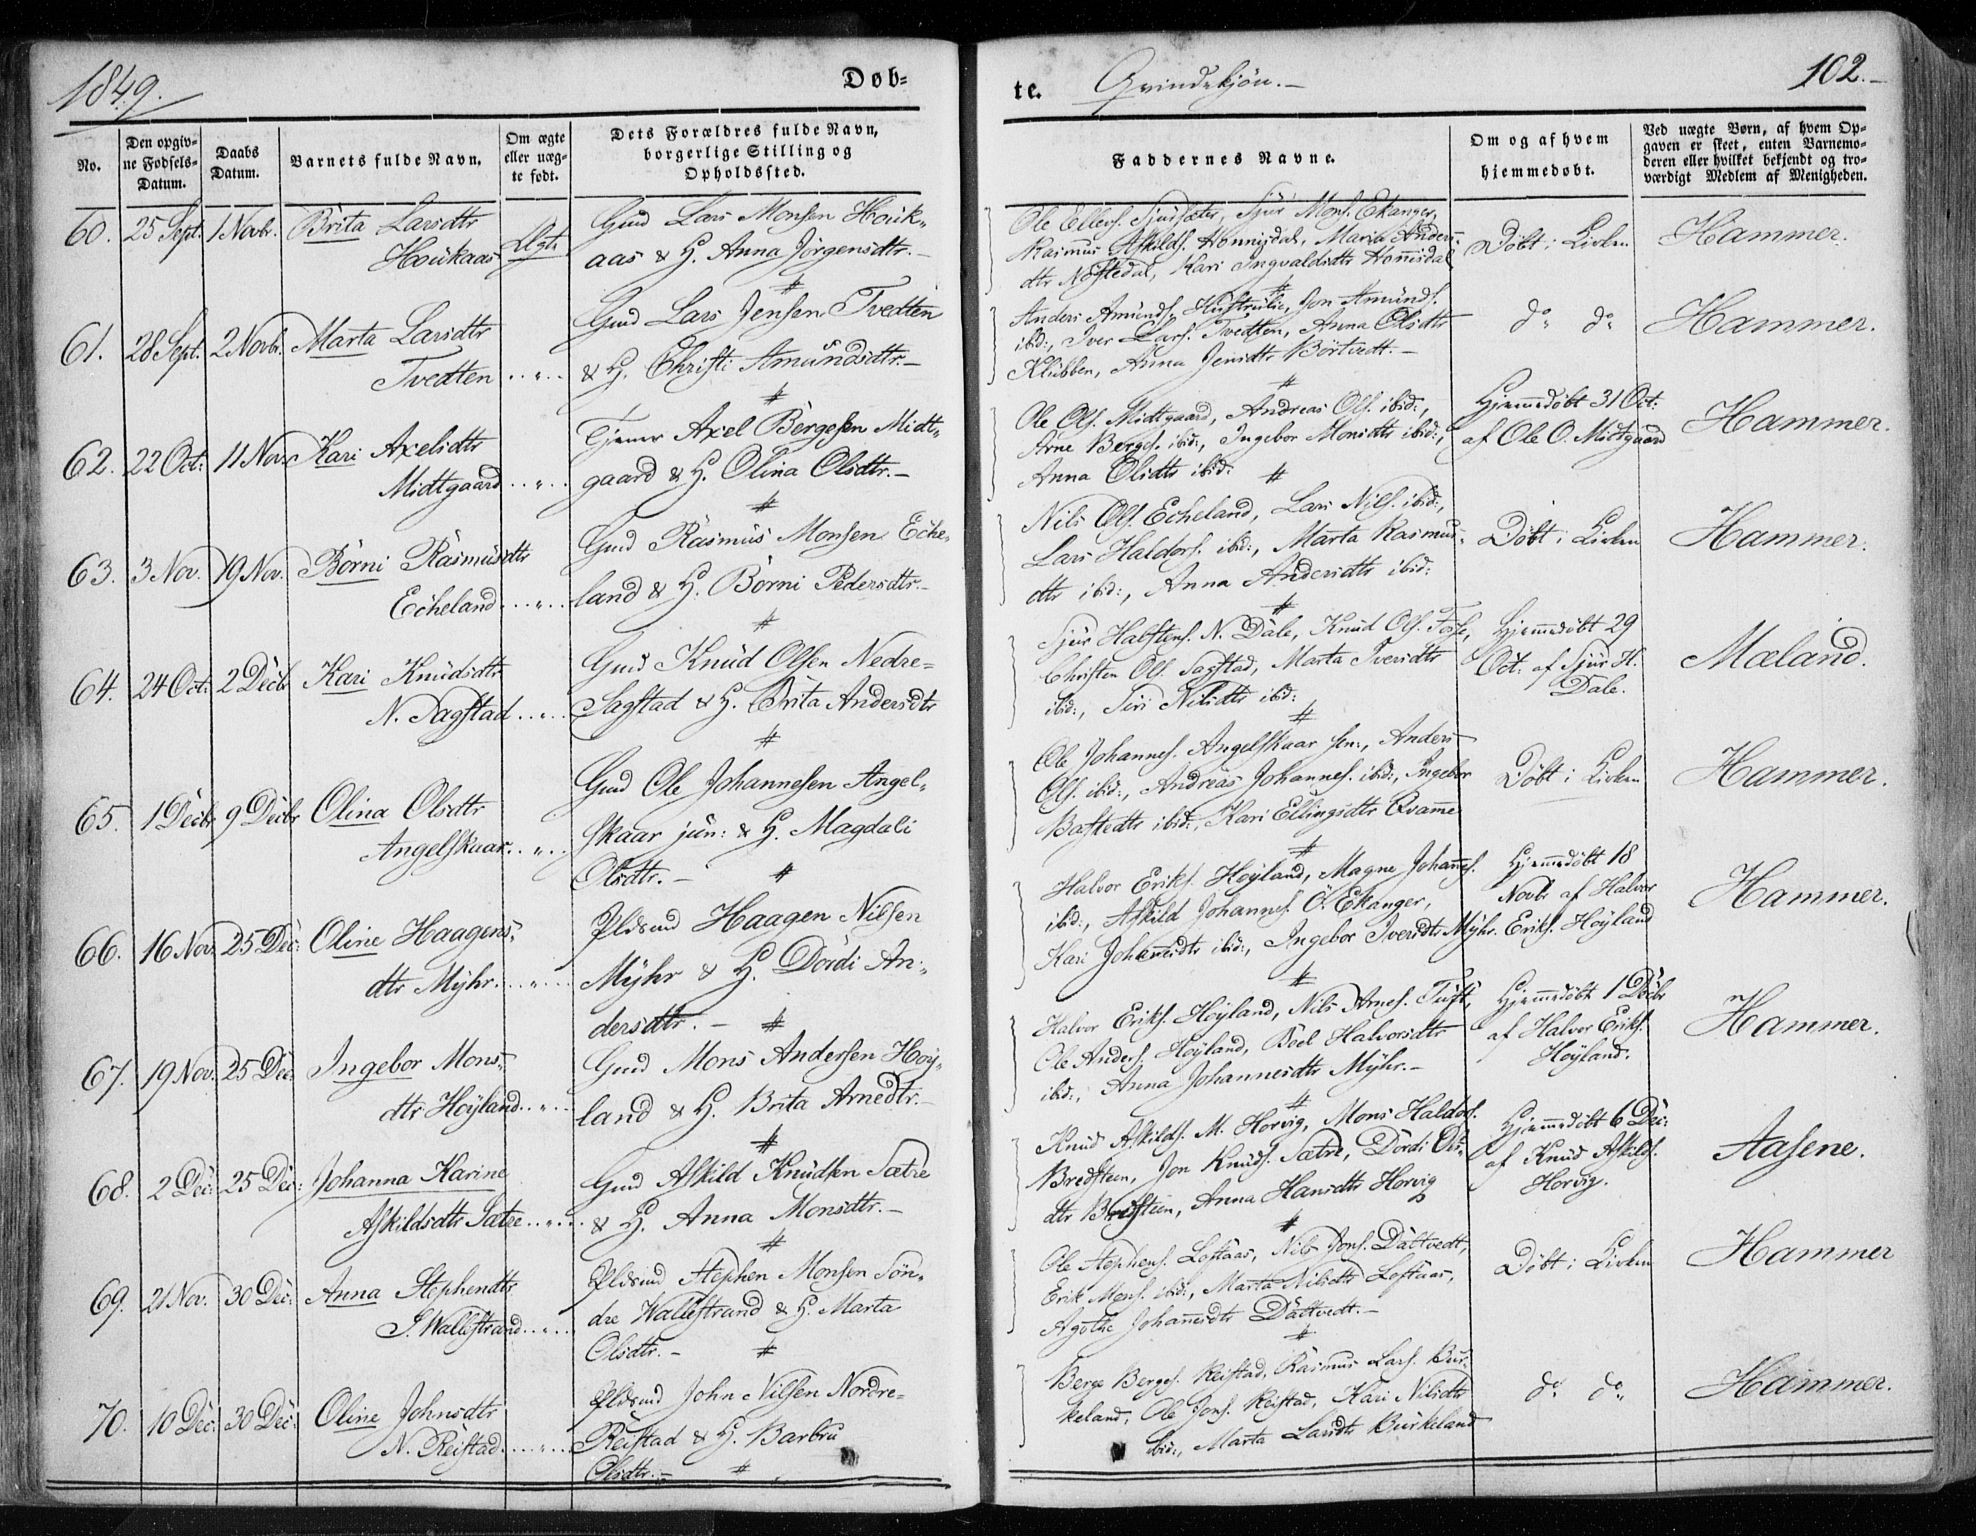 1849.
Døb-
te.
Qvindekjön.-
102.-
No.
Den opgiv-
ne Fødsels-
Datum.
Daabs
Datum.
Barnets fulde Navn.
Om ægte
eller uæg-
te født.
Dets Forældres fulde Navn,
borgerlige Stilling og
Opholdssted.
Faddernes Navne.
Om og af hvem
hjemmedøbt.
Ved uægte Børn, af hvem Op-
gaven er skeet, enten Barnemo-
deren eller hvilket bekjendt og tro-
værdigt Medlem af Menigheden.
60. 25 Sept. 1 Novbr. Brita Larsdtr
Houkaas Ægte
Gmd Lars Monsen Houk-
aas & H. Anna Jørgensdtr.-
Ole Ellers. Sjursæter, Sjur Mons. Ekanger,
Rasmus Askilds. Honnisdal, Maria Anders-
dtr Nøstedal, Kari Ingvaldsdtr Honnisdal
Døbt i Kirken
Hammer.
61. 28 Sept. 2 Novbr. Marta Larsdtr
Tvedten .. " ..
Gmd Lars Jensen Tvedten
& H. Christi Amundsdtr.-
Anders Amunds. Hustrulie, Jon Amunds.
ibid:, Iver Lars. Tvedten, Anna Olsdtr
Klubben, Anna Jensdtr Börtvedt.-
do do
Hammer.
62. 22 Oct: 11 Nov. Kari Axelsdtr
Midtgaard .. " ..
Tjener Axel Bergesen Midt-
gaard & H. Olina Olsdtr.-
Ole Ols. Midtgaard, Andreas Ols. ibid:,
Arne Berges. ibid:, Ingebor Monsdtr ibid:,
Anna Olsdtr ibid:
Hjemmedöbt 31 Oct:
af Ole O. Midtgaard
Hammer.
63. 3 Nov. 19 Nov. Börni Rasmusdtr
Echeland .. " ..
Gmd Rasmus Monsen Eche-
land & H. Börni Pedersdtr.-
Nils Ols. Echeland, Lars Nils. ibid:,
Lars Haldors. ibid:, Marta Rasmus-
dtr ibid:, Anna Andersdtr ibid:
Döbt i Kirken
Hammer.
64. 24 Oct: 2 Decbr Kari Knudsdtr
N. Sagstad .. " ..
Gmd Knud Olsen Nedre-
Sagstad & H. Brita Andersdtr
Sjur Halstens. N. Dale, Knud Ols. Fosse,
Christen Ols. Sagstad, Marta Iversdtr
ibid:, Siri Nilsdtr ibid:
Hjemmedöbt 29
Oct: af Sjur H.
Dale.
Mæland.
65. 1 Decbr 9 Decbr Olina Olsdtr
Angelskaar .. " ..
Gmd Ole Johannesen Angel-
skaar jun: & H. Magdali
Olsdtr.-
Ole Johannes. Angelskaar sen:, Anders
Ols. ibid:, Andreas Johannes. ibid:, Ingebor
Ellingsdtr Qvamme
Döbt i Kirken
Hammer.
66. 16 Nov. 25 Dec: Oline Haagens-
dtr Myhr .. " ..
Pldsmd Haagen Nilsen
Myhr & H. Dördi An-
dersdtr.-
Halvor Eriks. Höyland, Magne Johannes.
ibid:, Askild Johannes. Ö. Ekanger,
Kari Johannesdtr ibid:, Ingebor Iversdtr Myhr.
Hjemmedöbt 18
Novbr af Halvor
Eriks. Höyland
Hammer.
67. 19 Nov. 25 Dec: Ingebor Mons-
dtr Höyland .. " ..
Gmd Mons Andersen Höy-
land & H. Brita Arnedtr.-
Halvor Eriks. Höyland, Nils Arnes. Tuft,
Ole Anders. Höyland, Boel Halvorsdtr
ibid:, Anna Johannesdtr Myhr.-
Hjemmedöbt 1 Decbr
af Halvor Eriks.
Höyland.
Hammer.
68. 2 Dec: 25 Dec: Johanna Karine
Askildsdtr Sætre .. " ..
Gmd Askild Knudsen Sætre
& H. Anna Monsdtr.-
Knud Askilds. M. Horvig, Mons Haldors.
Bredsteen, Jon Knuds. Sætre, Dördi Ols-
dtr Bredsteen, Anna Hansdtr Horvig
Hjemmedöbt 6 Dec:
af Knud Askilds.
Horvig.
Aasene.
69. 21 Nov. 30 Dec: Anna Stephendtr
S. Wallestrand .. " ..
Pldsmd Stephen Monsen Sön-
dre Wallestrand & H. Marta
Olsdtr.-
Ole Stephens. Loftaas, Nils Jons. Daltvedt,
Erik Mons. ibid:, Marta Nilsdtr Loftaas,
Agothe Johannesdtr Daltvedt.-
Döbt i Kirken
Hammer
70. 10 Dec: 30 Dec: Oline Johnsdtr
N. Reistad .. " ..
Pldsmd John Nilsen Nordre-
Reistad & H. Barbru
Olsdtr.-
Berge Berges. Reistad, Rasmus Lars. Bur-
keland, Ole Jons. Reistad, Kari Nilsdtr
ibid:, Marta Larsdtr Burkeland
do do
Hammer.